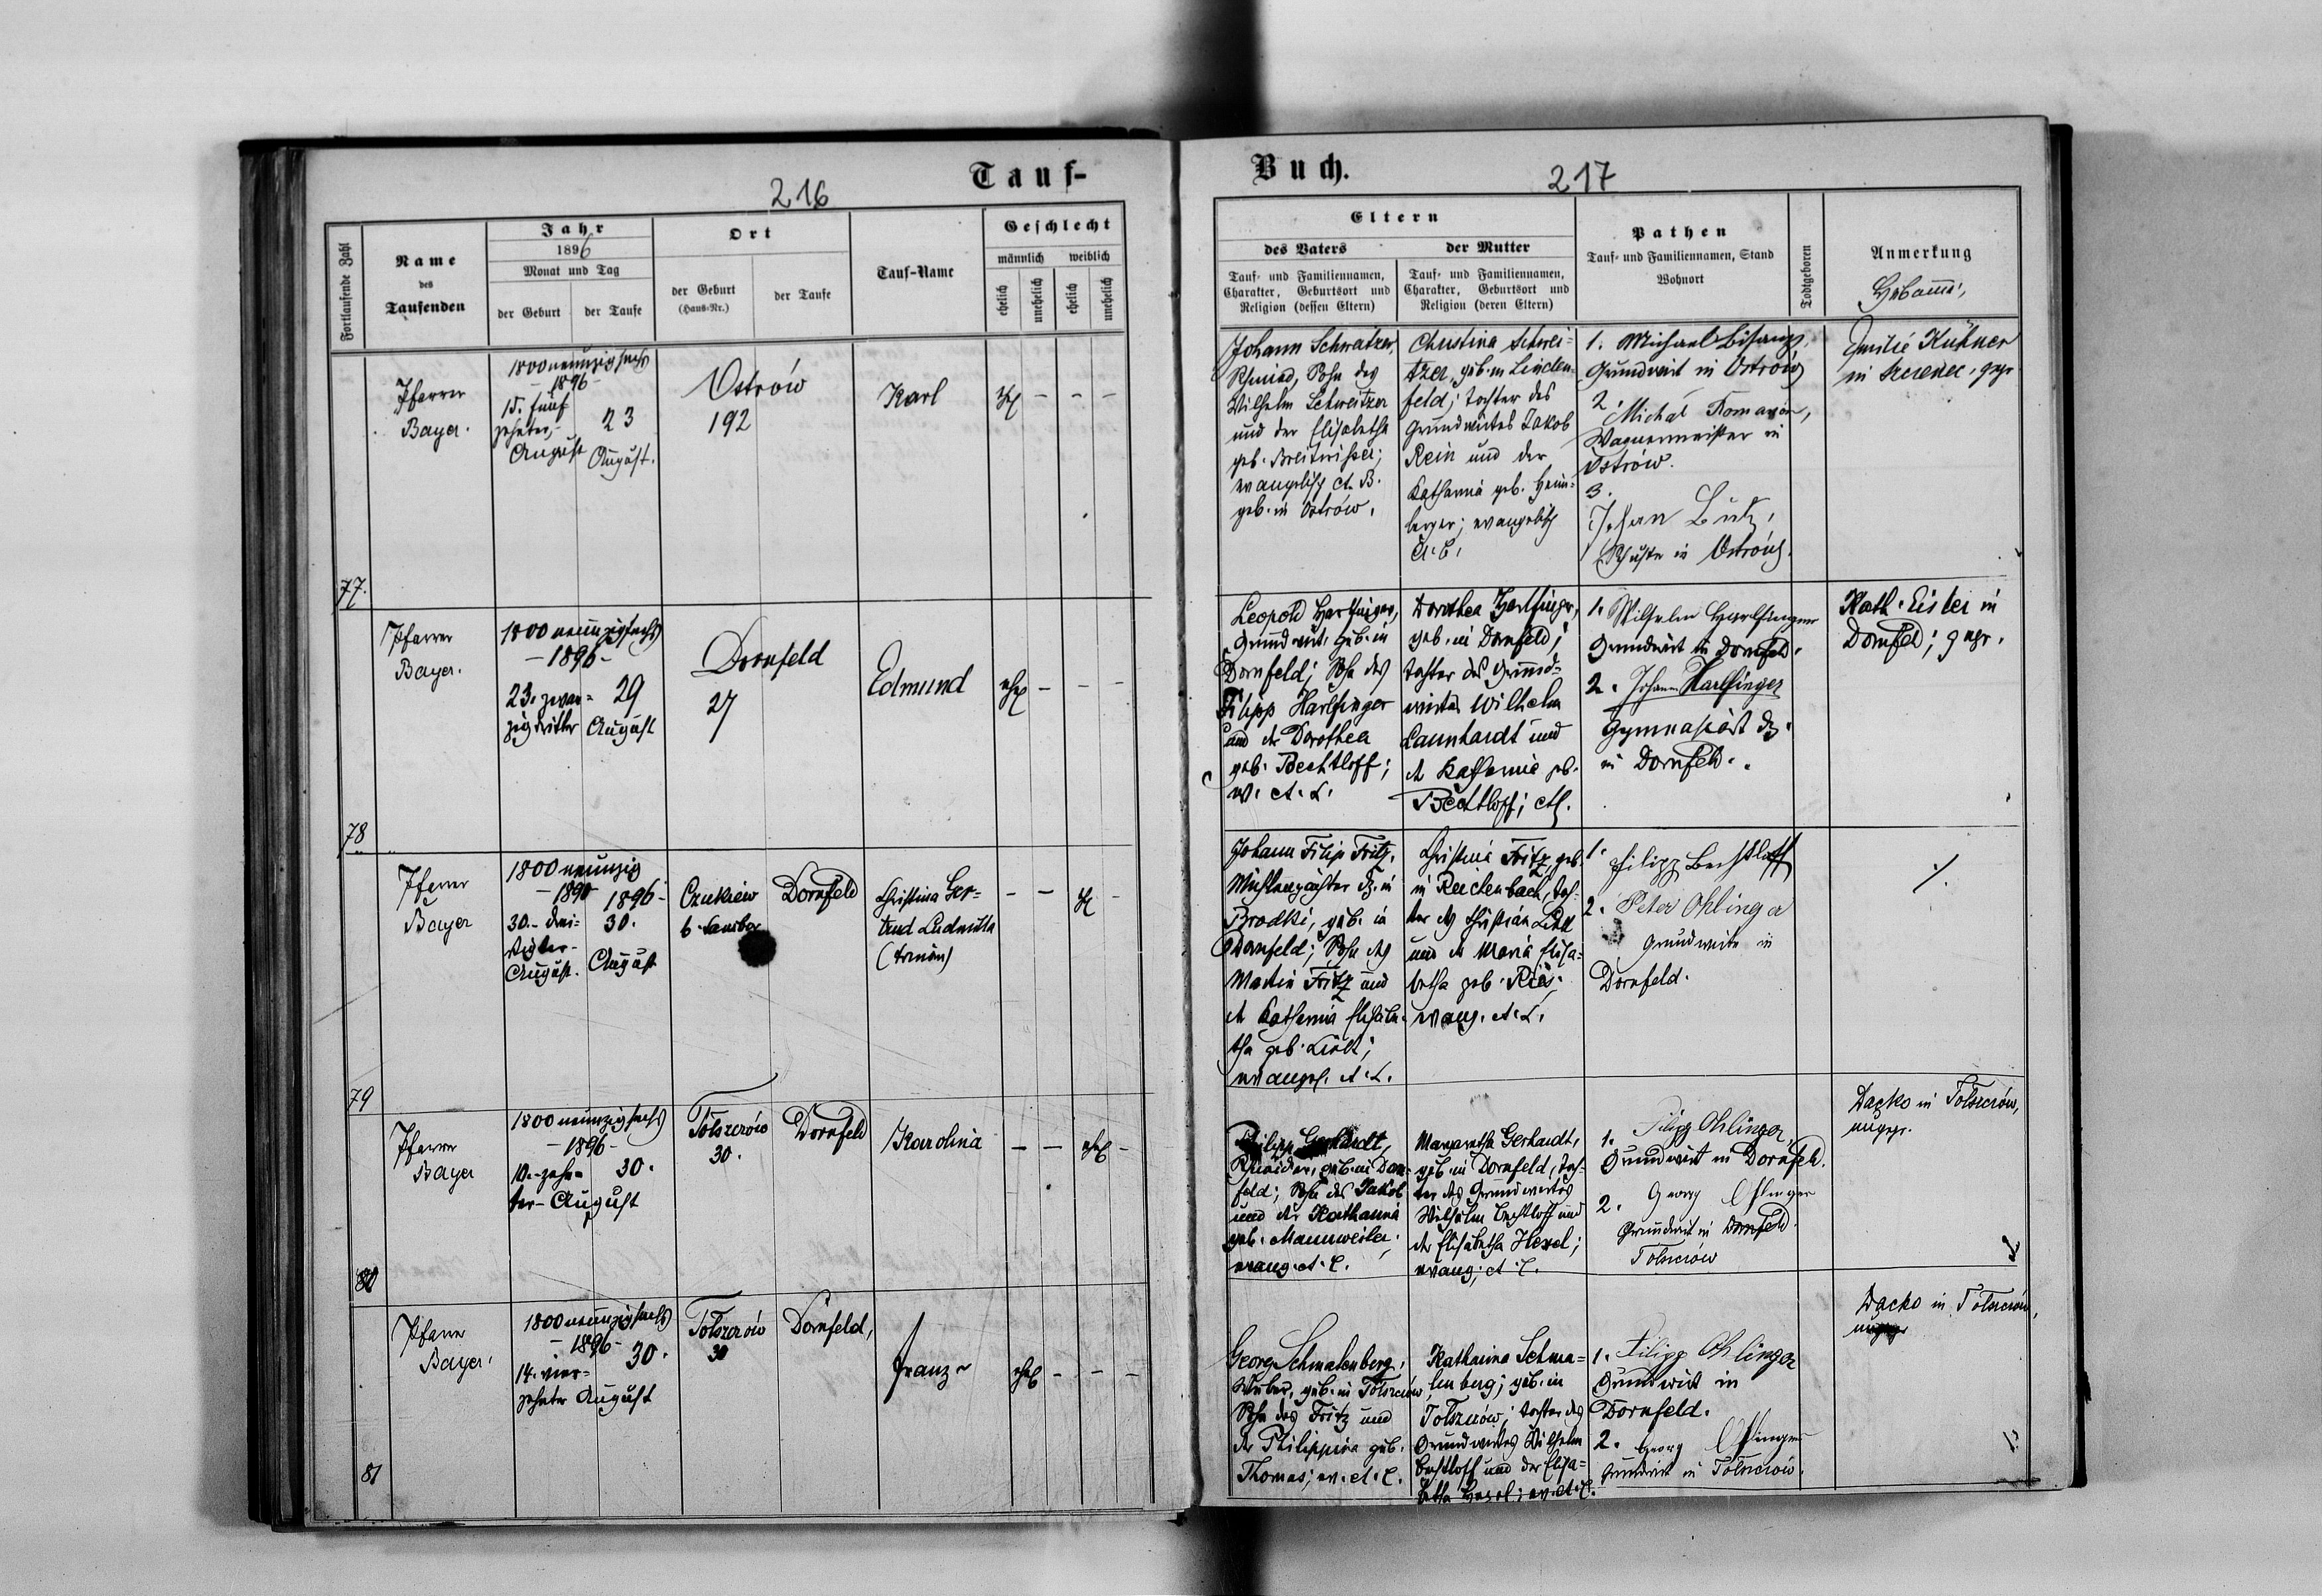 Tauf-
216
Fortlaufende Zahl
Name
des
Taufenden
Jahr
1896
Monat und Tag
der Geburt
der Taufe
Ort
der Geburt
(Haus-Nr.)
der Taufe
Tauf-Name
Geschlecht
männlich
weiblich
ehelich
unehelich
ehelich
unehelich
77.
Pfarrer
Bayer.
1800 neunzig sechs
- 1896 -
15. fünf
zehnter,-
August
23
August.
Ostrów
192
Karl
78
Pfarrer
Bayer.
1800 neunzigsechs
- 1896 -
23. zwan=
zigdritter
29
August
Dornfeld
27
Edmund
ehel
79
Pfarrer
Bayer
1800 neunzig
30.- drei=
August.
1896-
30.
August
Czukiew
b. Sambor
Dornfeld
Christina Ger=
trud Ludmilla
80
Pfarrer
Bayer
1800 neunzigsechs
- 1896 -
10.- zehn=
ter - August
30.
Tołszczów
30.
Dornfeld
Karolina
ehel
81
Pfarrer
Bayer.
1800 neunzigsechs
- 1896 -
14. vier=
zehnter August
30.
Tołszczów
30
Dornfeld,
Franz
ehel
Buch.
217
Eltern
des Vaters
Tauf- und Familiennamen,
Charakter, Geburtsort und
Religion (dessen Eltern)
der Mutter
Tauf- und Familiennamen,
Charakter, Geburtsort und
Religion (deren Eltern)
Pathen
Tauf- und Familiennamen, Stand
Wohnort
Todtgeboren
Anmerkung
Johann Schweitzer,
Schmied, Sohn des
Wilhelm Schweitzer
und der Elisabetha
geb.
evangelisch A. B.
geb. in Ostrów.
Christina Schwei=
tzer, geb. in Linden=
feld; Tochter des
Grundwirtes Jakob
Rein und der
Katharina geb. Heim=
berger; evangelisch
1. Michael Bisanz,
Grundwirt in Ostrów
2. Michał
Wagnermeister in
Ostrów.
3.
Johan Butz,
Schuster in Ostrów.
Emilie Kühner
in Szczerzec, gepr
Leopold Harlfinger,
Grundwirt, geb. in
Dornfeld; Sohn des
Filipp Harlfinger
und der Dorothea
geb. Bechtloff;
Dorothea Harlfinger,
geb. in Dornfeld;
Tochter des Grund=
wirtes Wilhelm
Launhardt und
der Katharina geb.
Bechtloff;
1. Wilhelm Harlfinger
Grundwirt in Dornfeld.
2. Johann Harlfinger
Gymnasiast
in Dornfeld.
Kath. Eisler in
Dornfeld; gepr.
Johann Filip Fritz,
Mühlenpächter dz. in
Brodki, geb. in
Dornfeld; Sohn des
Martin Fritz und
der Katharina Elisabe=
tha geb.
evangel.
Christina Fritz, geb.
in Reichenbach, Toch=
ter des Christian
und der Maria Elisa=
betha geb.
evang.
1. Filipp Bechtloff
2. Peter Ohlinger
Grundwirte in
Dornfeld.
Philipp Gerhardt,
Schneider, geb. in Dorn=
feld; Sohn des Jakob
und der Katharina
geb. Mannweiler;
evang.
Margaretha Gerhardt,
geb. in Dornfeld, Toch=
ter des Grundwirtes
Wilhelm Bechtloff und
der Elisabetha Hexel;
evang.
1. Filipp Ohlinger,
Grundwirt in Dornfeld.
2. Georg Ohlinger
Grundwirt in Dornfeld
Tołszczów
Dacko in Tołszczów,
ungepr.
Georg Schmalenberg,
Weber, geb. in Tołszczów,
Sohn des Fritz und
der Philippina geb.
Thomas; ev.
Katharina Schma=
lenberg; geb. in
Tołszczów; Tochter des
Grundwirtes Wilhelm
Bechtloff und der Elisa=
betha Hexel; ev.
1. Filipp Ohlinger
Grundwirt in
Dornfeld.
2. Georg Ohlinger
Grundwirt in Tołszczów.
Dacko in Tołszczów,